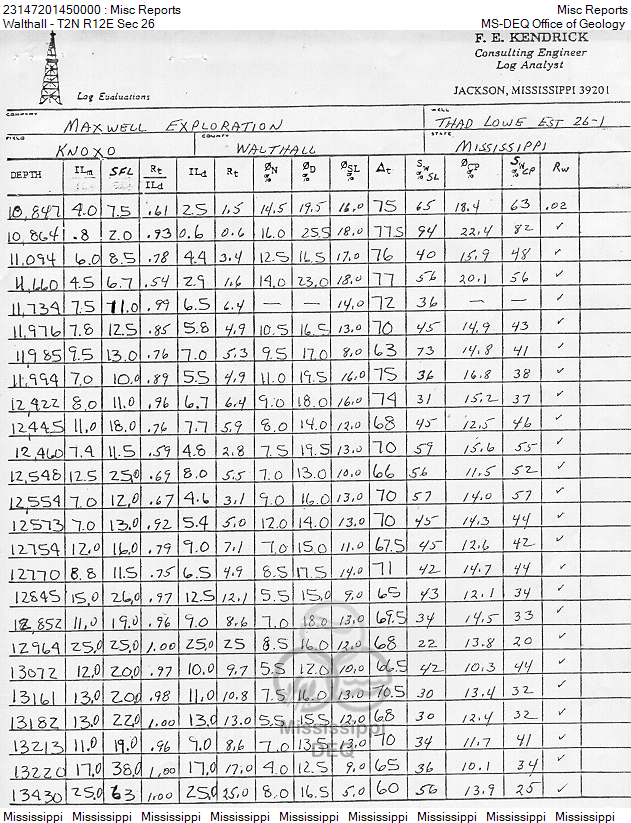 23147201450000 : Misc Reports Misc Reports
Walthall - T2N R12E Sec 26 MS-DEQ Office of Geology
F. E. KENDRICK
Consulting Engineer
Log Analyst
JACKSON, MISSISSIPPI 39201
Log Evaluations
COMPANY WELL
MAXWELL EXPLORATION THAD LOWE EST 26-1
FIELD COUNTY STATE
KNOXO WALTHALL MISSISSIPPI
DEPTH ILm SFL Rt/ILd ILd Rt ØN % ØD % ØSL % Δt Sw % SL ØCP % Sw % CP Rw
10,847 4.0 7.5 .61 2.5 1.5 14.5 19.5 16.0 75 65 18.4 63 .02
10,864 .8 2.0 .93 0.6 0.6 16.0 25.5 18.0 77.5 94 22.4 82 ✓
11,094 6.0 8.5 .78 4.4 3.4 12.5 16.5 17.0 76 40 15.9 48 ✓
11,660 4.5 6.7 .54 2.9 1.6 14.0 23.0 18.0 77 56 20.1 56 ✓
11,734 7.5 11.0 .99 6.5 6.4 — — 14.0 72 36 — — ✓
11,976 7.8 12.5 .85 5.8 4.9 10.5 16.5 13.0 70 45 14.9 43 ✓
11985 9.5 13.0 .76 7.0 5.3 9.5 17.0 8.0 63 73 14.8 41 ✓
11,994 7.0 10.0 .89 5.5 4.9 11.0 19.5 16.0 75 36 16.8 38 ✓
12,422 8.0 11.0 .96 6.7 6.4 9.0 18.0 16.0 74 31 15.2 37 ✓
12,445 11.0 18.0 .76 7.7 5.9 8.0 14.0 12.0 68 45 12.5 46 ✓
12,460 7.4 11.5 .59 4.8 2.8 7.5 19.5 13.0 70 59 15.6 55 ✓
12,548 12.5 25.0 .69 8.0 5.5 7.0 13.0 10.0 66 56 11.5 52 ✓
12,554 7.0 12.0 .67 4.6 3.1 9.0 16.0 13.0 70 57 14.0 57 ✓
12573 7.0 13.0 .92 5.4 5.0 12.0 14.0 13.0 70 45 14.3 44 ✓
12754 12.0 16.0 .79 9.0 7.1 7.0 15.0 11.0 67.5 45 12.6 42 ✓
12770 8.8 11.5 .75 6.5 4.9 8.5 17.5 14.0 71 42 14.7 44 ✓
12845 15.0 26.0 .97 12.5 12.1 5.5 15.0 9.0 65 43 12.1 34 ✓
12,852 11.0 19.0 .96 9.0 8.6 7.0 18.0 13.0 69.5 34 14.5 33 ✓
12964 25.0 25.0 1.00 25.0 25 8.5 16.0 12.0 68 22 13.8 20 ✓
13072 12.0 20.0 .97 10.0 9.7 5.5 12.0 10.0 66.5 42 10.3 44 ✓
13161 13.0 20.0 .98 11.0 10.8 7.5 16.0 13.0 70.5 30 13.4 32 ✓
13182 13.0 22.0 1.00 13.0 13.0 5.5 15.5 12.0 68 30 12.4 32 ✓
13213 11.0 19.0 .96 9.0 8.6 7.0 13.5 13.0 70 34 11.7 41 ✓
13220 17.0 38.0 1.00 17.0 17.0 4.0 12.5 9.0 65 36 10.1 34 ✓
13430 25.0 63 1.00 25.0 25.0 8.0 16.5 5.0 60 56 13.9 25 ✓
Mississippi
DEQ
Mississippi Mississippi Mississippi Mississippi Mississippi Mississippi Mississippi Mississippi Mississippi